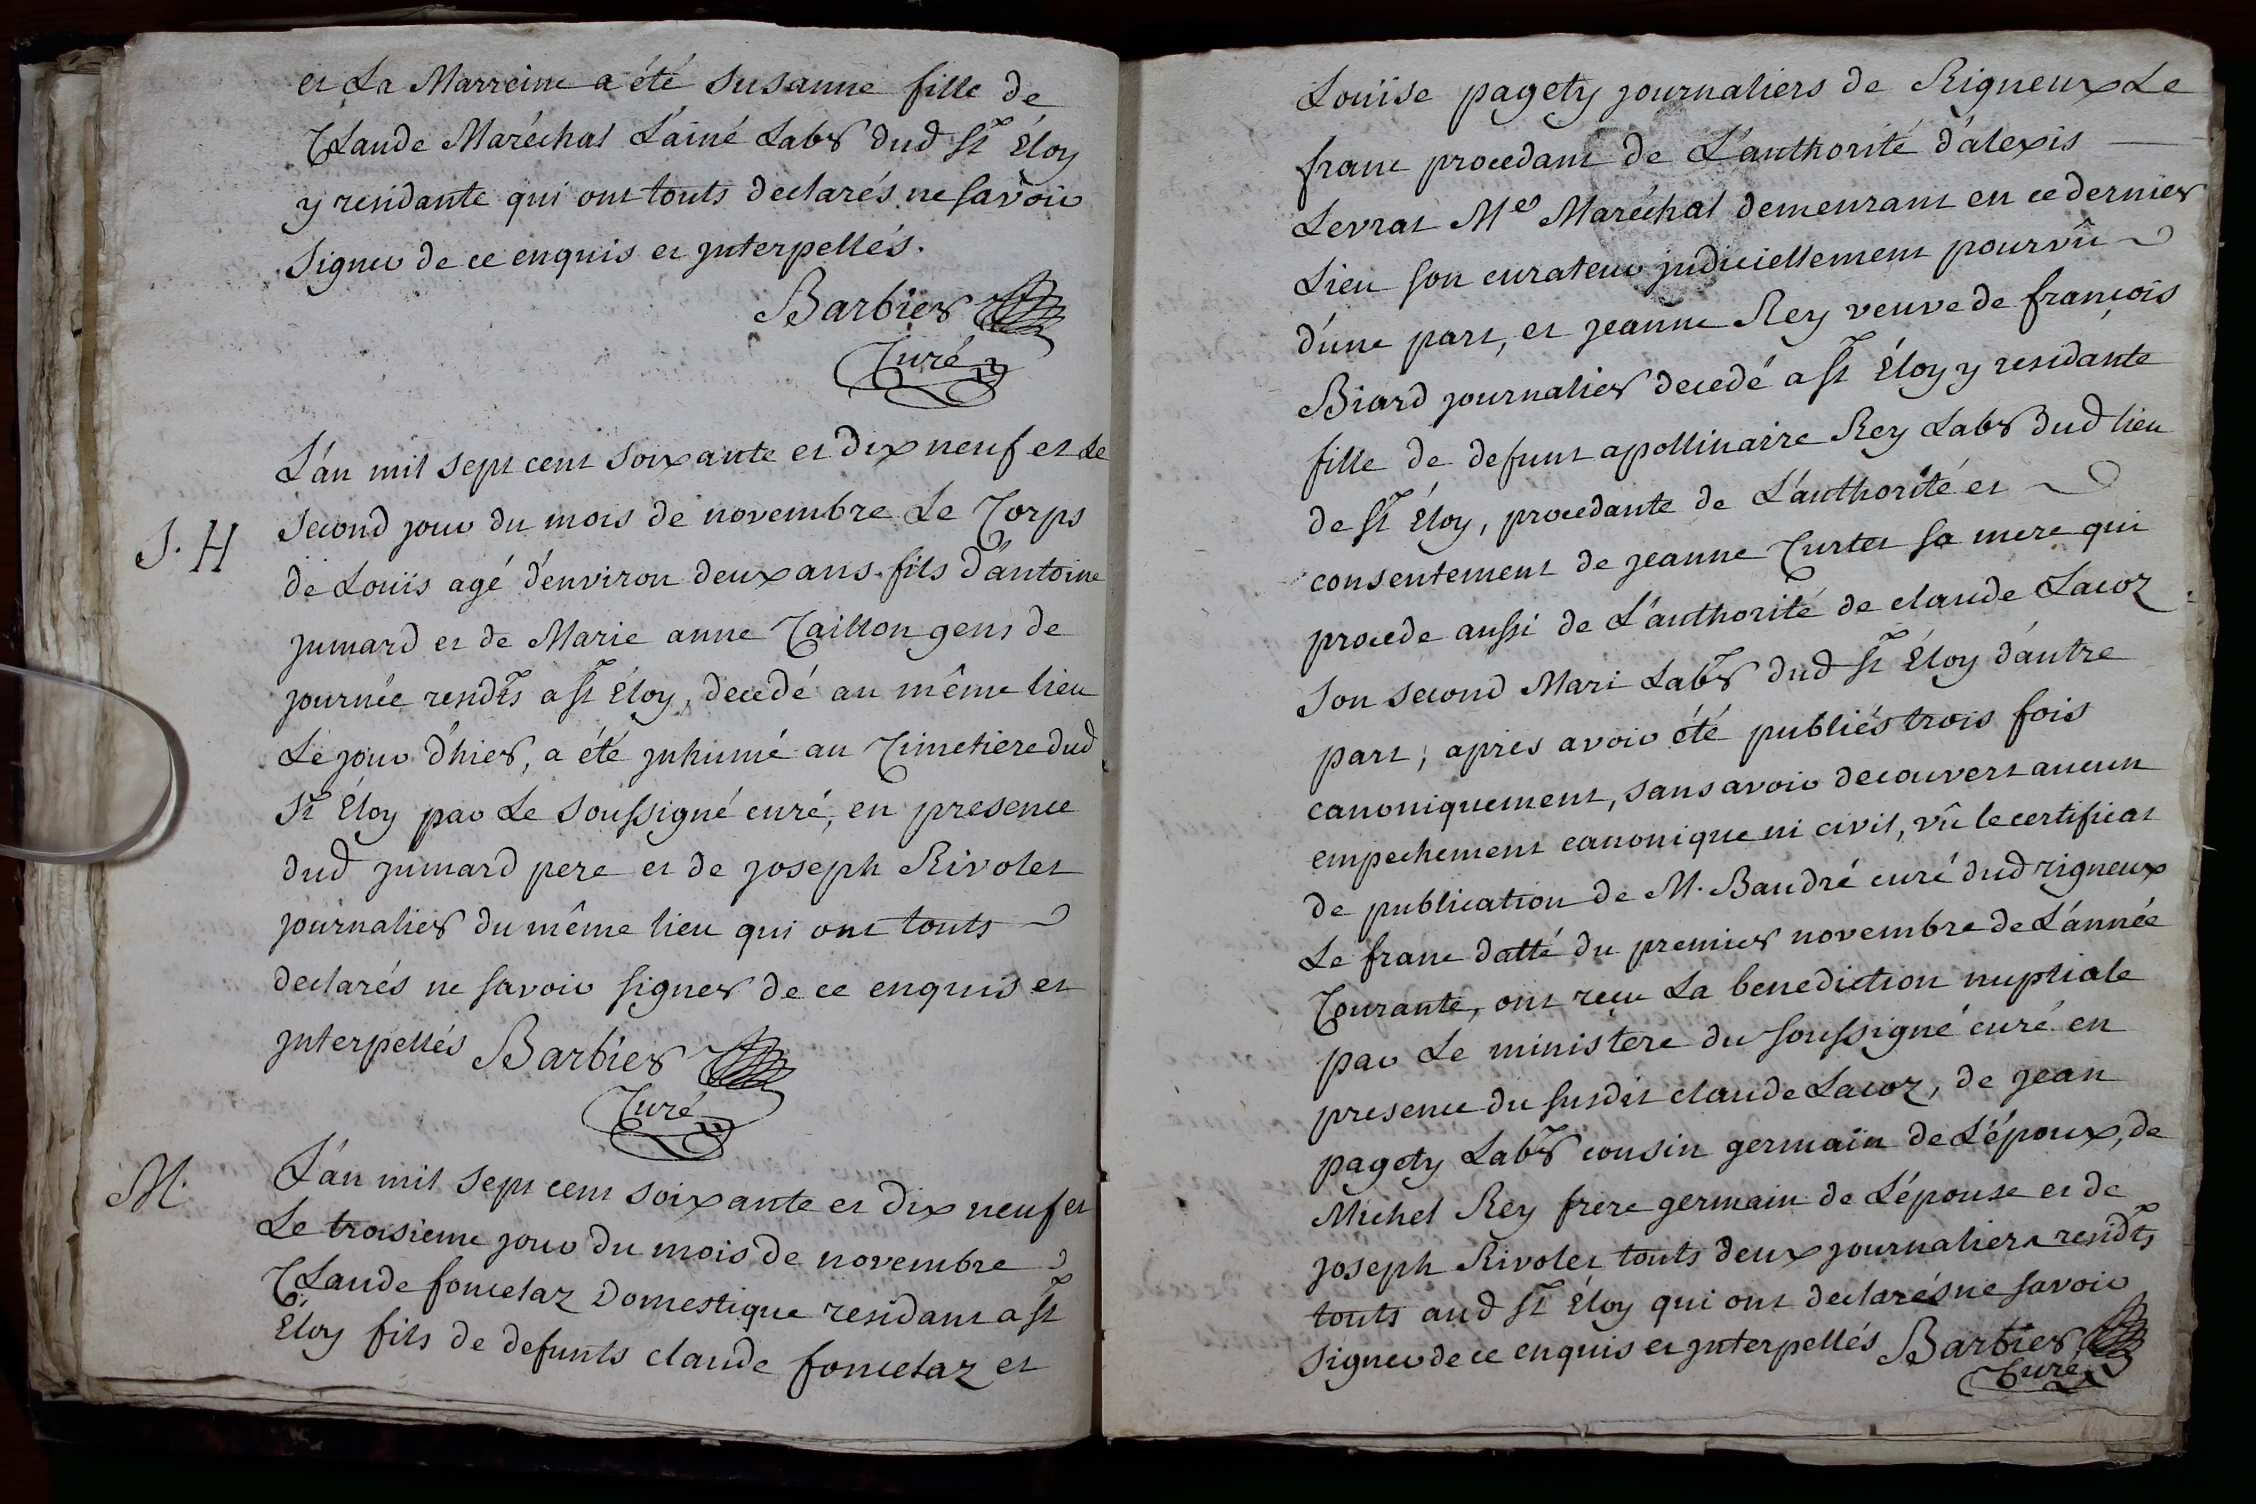 et La Marreine a été susanne fille de
Claude Maréchal L'ainé Labr dud St Éloy
y residante qui ont touts declarés ne savoir
signer de ce enquis et jnterpellés.
Barbier
Curé
L'an mil sept cent soixante et dix neuf et Le
J. H
second jour du mois de novembre Le Corps
de Louis agé d'environ deux ans fils d'antoine
jumard et de Marie anne Caillon gens de
journée residts a St Éloy, decedé au même lieu
Le jour d'hier, a été jnhumé au Cimetiere dud
St Éloy par Le soussigné curé, en presence
dud jumard pere et de joseph Rivolet
journalier du même lieu qui ont touts
declarés ne savoir signer de ce enquis et
jnterpellés Barbier
Curé
M.
L'an mil sept cent soixante et dix neuf et
Le troisieme jour du mois de novembre
Claude foncelaz Domestique residant a St
Éloy fils de defunts claude foncelaz et
Louise pagety journaliers de Rigneux Le
franc procedant de L'authorité d'alexis
Levrat Me Maréchal demeurant en ce dernier
Lieu son curateur judiciellement pourvû
d'une part, et jeanne Rey veuve de françois
Biard journalier decedé a St Éloy y residante
fille de defunt apollinaire Rey Labr dud lieu
de St Éloy, procedante de L'authorité et
consentement de jeanne Curtet sa mere qui
procede aussi de L'authorité de claude Lacoz
son second Mari Labr dud St Éloy d'autre
part; apres avoir été publiés trois fois
canoniquement, sans avoir decouvert aucun
empechement canonique ni civil, vû le certificat
de publication de M. Baudré curé dud rigneux
Le franc datté du premier novembre de L'année
Courante, ont reçu La benediction nuptiale
par Le ministere du soussigné curé en
presence du susdit claude Lacoz, de jean
pagety Labr cousin germain de L'époux, de
Michel Rey frere germain de L'épouse et de
joseph Rivolet touts deux journaliers residts
touts aud St Éloy qui ont declarés ne savoir
signer de ce enquis et jnterpellés Barbier
Curé